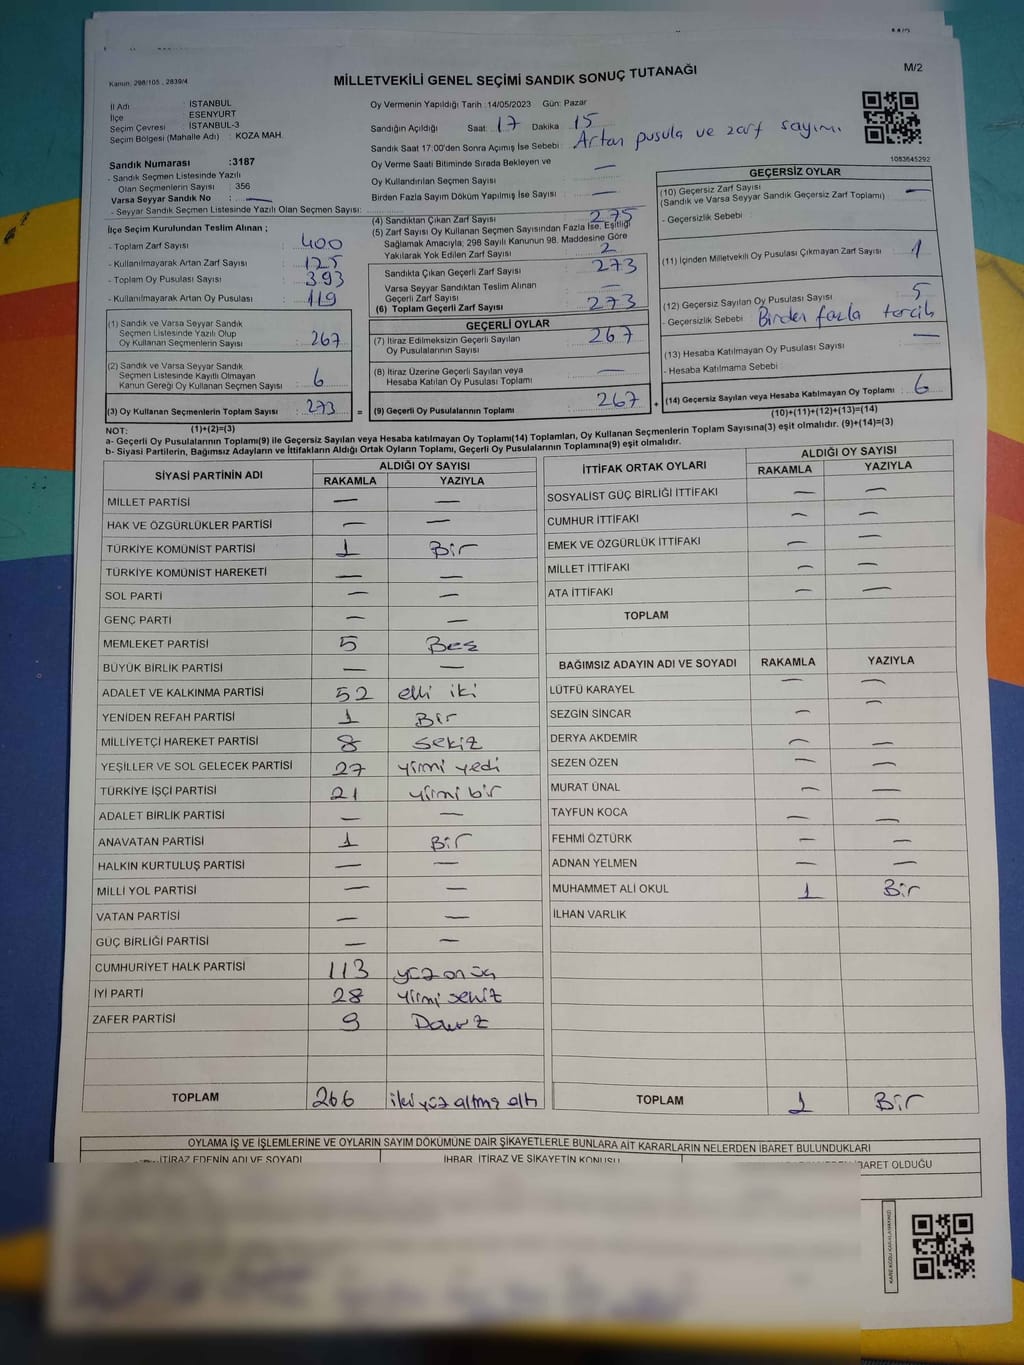 Kanun: 298/105 , 2839/4
MİLLETVEKİLİ GENEL SEÇİMİ SANDIK SONUÇ TUTANAĞI
M/2
İl Adı : İSTANBUL
İlçe : ESENYURT
Seçim Çevresi : İSTANBUL-3
Seçim Bölgesi (Mahalle Adı) : KOZA MAH.
Sandık Numarası :3187
- Sandık Seçmen Listesinde Yazılı
Olan Seçmenlerin Sayısı : 356
Varsa Seyyar Sandık No : —
- Seyyar Sandık Seçmen Listesinde Yazılı Olan Seçmen Sayısı:
Oy Vermenin Yapıldığı Tarih :14/05/2023 Gün: Pazar
Sandığın Açıldığı Saat: 17 Dakika 15
Sandık Saat 17:00'den Sonra Açımış İse Sebebi : Artan pusula ve zarf sayımı
Oy Verme Saati Bitiminde Sırada Bekleyen ve
Oy Kullandırılan Seçmen Sayısı : —
Birden Fazla Sayım Döküm Yapılmış İse Sayısı : —
1083645292
İlçe Seçim Kurulundan Teslim Alınan ;
- Toplam Zarf Sayısı : 400
- Kullanılmayarak Artan Zarf Sayısı : 125
- Toplam Oy Pusulası Sayısı : 393
- Kullanılmayarak Artan Oy Pusulası : 119
(1) Sandık ve Varsa Seyyar Sandık
Seçmen Listesinde Yazılı Olup
Oy Kullanan Seçmenlerin Sayısı : 267
(2) Sandık ve Varsa Seyyar Sandık
Seçmen Listesinde Kayıtlı Olmayan
Kanun Gereği Oy Kullanan Seçmen Sayısı : 6
(3) Oy Kullanan Seçmenlerin Toplam Sayısı : 273
(1)+(2)=(3)
(4) Sandıktan Çıkan Zarf Sayısı : 275
(5) Zarf Sayısı Oy Kullanan Seçmen Sayısından Fazla İse, Eşitliği
Sağlamak Amacıyla; 298 Sayılı Kanunun 98. Maddesine Göre
Yakılarak Yok Edilen Zarf Sayısı : 2
Sandıkta Çıkan Geçerli Zarf Sayısı : 273
Varsa Seyyar Sandıktan Teslim Alınan
Geçerli Zarf Sayısı : —
(6) Toplam Geçerli Zarf Sayısı : 273
GEÇERLİ OYLAR
(7) İtiraz Edilmeksizin Geçerli Sayılan
Oy Pusulalarının Sayısı : 267
(8) İtiraz Üzerine Geçerli Sayılan veya
Hesaba Katılan Oy Pusulası Toplamı : —
= (9) Geçerli Oy Pusulalarının Toplamı : 267 +
GEÇERSİZ OYLAR
(10) Geçersiz Zarf Sayısı : —
(Sandık ve Varsa Seyyar Sandık Geçersiz Zarf Toplamı)
- Geçersizlik Sebebi :
(11) İçinden Milletvekili Oy Pusulası Çıkmayan Zarf Sayısı : 1
(12) Geçersiz Sayılan Oy Pusulası Sayısı : 5
- Geçersizlik Sebebi : Birden fazla tercih
(13) Hesaba Katılmayan Oy Pusulası Sayısı : —
- Hesaba Katılmama Sebebi :
(14) Geçersiz Sayılan veya Hesaba Katılmayan Oy Toplamı : 6
(10)+(11)+(12)+(13)=(14)
NOT:
a- Geçerli Oy Pusulalarının Toplamı(9) ile Geçersiz Sayılan veya Hesaba katılmayan Oy Toplamı(14) Toplamları, Oy Kullanan Seçmenlerin Toplam Sayısına(3) eşit olmalıdır. (9)+(14)=(3)
b- Siyasi Partilerin, Bağımsız Adayların ve İttifakların Aldığı Ortak Oyların Toplamı, Geçerli Oy Pusulalarının Toplamına(9) eşit olmalıdır.
SİYASİ PARTİNİN ADI ALDIĞI OY SAYISI
RAKAMLA YAZIYLA
MİLLET PARTİSİ — —
HAK VE ÖZGÜRLÜKLER PARTİSİ — —
TÜRKİYE KOMÜNİST PARTİSİ 1 Bir
TÜRKİYE KOMÜNİST HAREKETİ — —
SOL PARTİ — —
GENÇ PARTİ — —
MEMLEKET PARTİSİ 5 Beş
BÜYÜK BİRLİK PARTİSİ — —
ADALET VE KALKINMA PARTİSİ 52 elli iki
YENİDEN REFAH PARTİSİ 1 Bir
MİLLİYETÇİ HAREKET PARTİSİ 8 Sekiz
YEŞİLLER VE SOL GELECEK PARTİSİ 27 yirmi yedi
TÜRKİYE İŞÇİ PARTİSİ 21 yirmi bir
ADALET BİRLİK PARTİSİ — —
ANAVATAN PARTİSİ 1 Bir
HALKIN KURTULUŞ PARTİSİ — —
MİLLİ YOL PARTİSİ — —
VATAN PARTİSİ — —
GÜÇ BİRLİĞİ PARTİSİ — —
CUMHURİYET HALK PARTİSİ 113 yüz on üç
İYİ PARTİ 28 yirmi sekiz
ZAFER PARTİSİ 9 Dokuz
TOPLAM 266 iki yüz altmış altı
İTTİFAK ORTAK OYLARI ALDIĞI OY SAYISI
RAKAMLA YAZIYLA
SOSYALİST GÜÇ BİRLİĞİ İTTİFAKI — —
CUMHUR İTTİFAKI — —
EMEK VE ÖZGÜRLÜK İTTİFAKI — —
MİLLET İTTİFAKI — —
ATA İTTİFAKI — —
TOPLAM
BAĞIMSIZ ADAYIN ADI VE SOYADI RAKAMLA YAZIYLA
LÜTFÜ KARAYEL — —
SEZGİN SİNCAR — —
DERYA AKDEMİR — —
SEZEN ÖZEN — —
MURAT ÜNAL — —
TAYFUN KOCA — —
FEHMİ ÖZTÜRK — —
ADNAN YELMEN — —
MUHAMMET ALİ OKUL 1 Bir
İLHAN VARLIK
TOPLAM 1 Bir
OYLAMA İŞ VE İŞLEMLERİNE VE OYLARIN SAYIM DÖKÜMÜNE DAİR ŞİKAYETLERLE BUNLARA AİT KARARLARIN NELERDEN İBARET BULUNDUKLARI
İTİRAZ EDENİN ADI VE SOYADI İHBAR, İTİRAZ VE ŞİKAYETİN KONUSU İBARET OLDUĞU